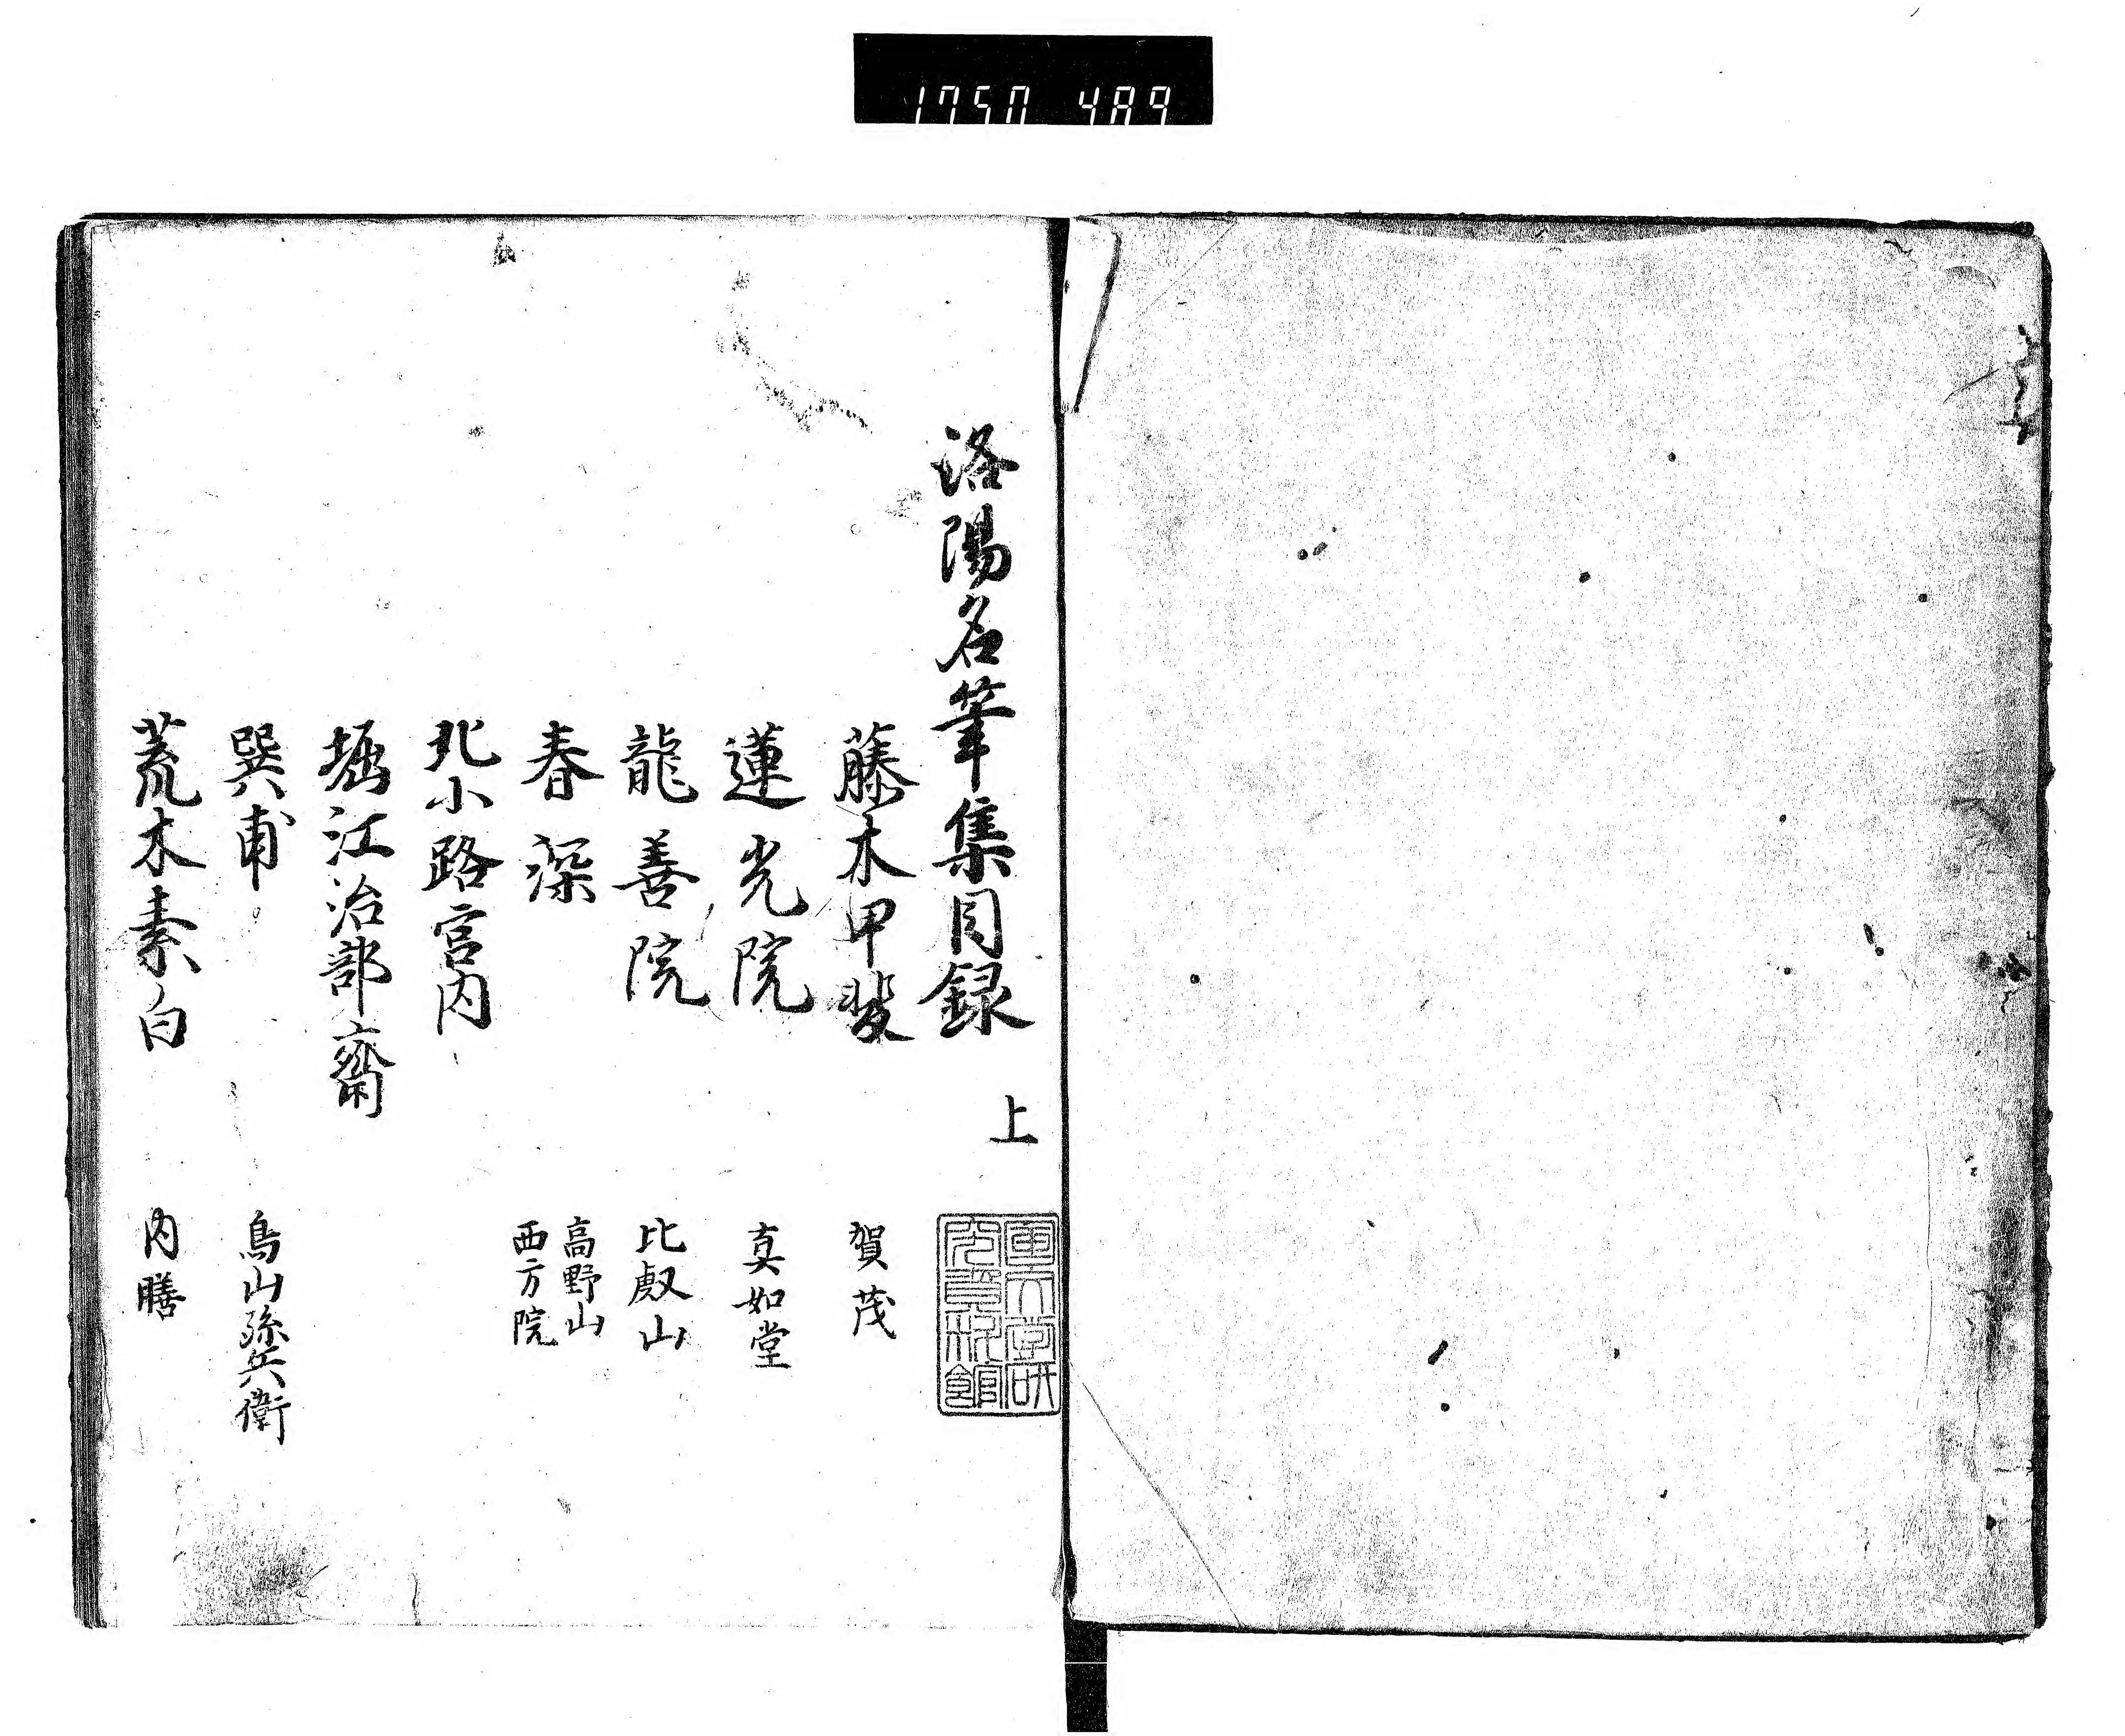 1750 489
洛陽名筆集目録 上
藤木甲斐 賀茂
蓮光院 真如堂
龍善院 比叡山
春深 高野山
西方院
北小路宮内
堀江治部齋
巽甫 鳥山孫兵衛
荒木素白 内膳